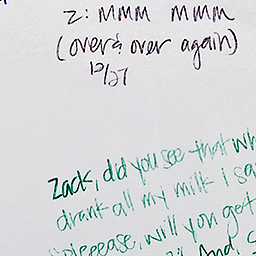 z: mmm mmm
(over & over again)
12/27
Zack, did you see that wh
drank all my milk i sa
"pleeease, will you get
And, s